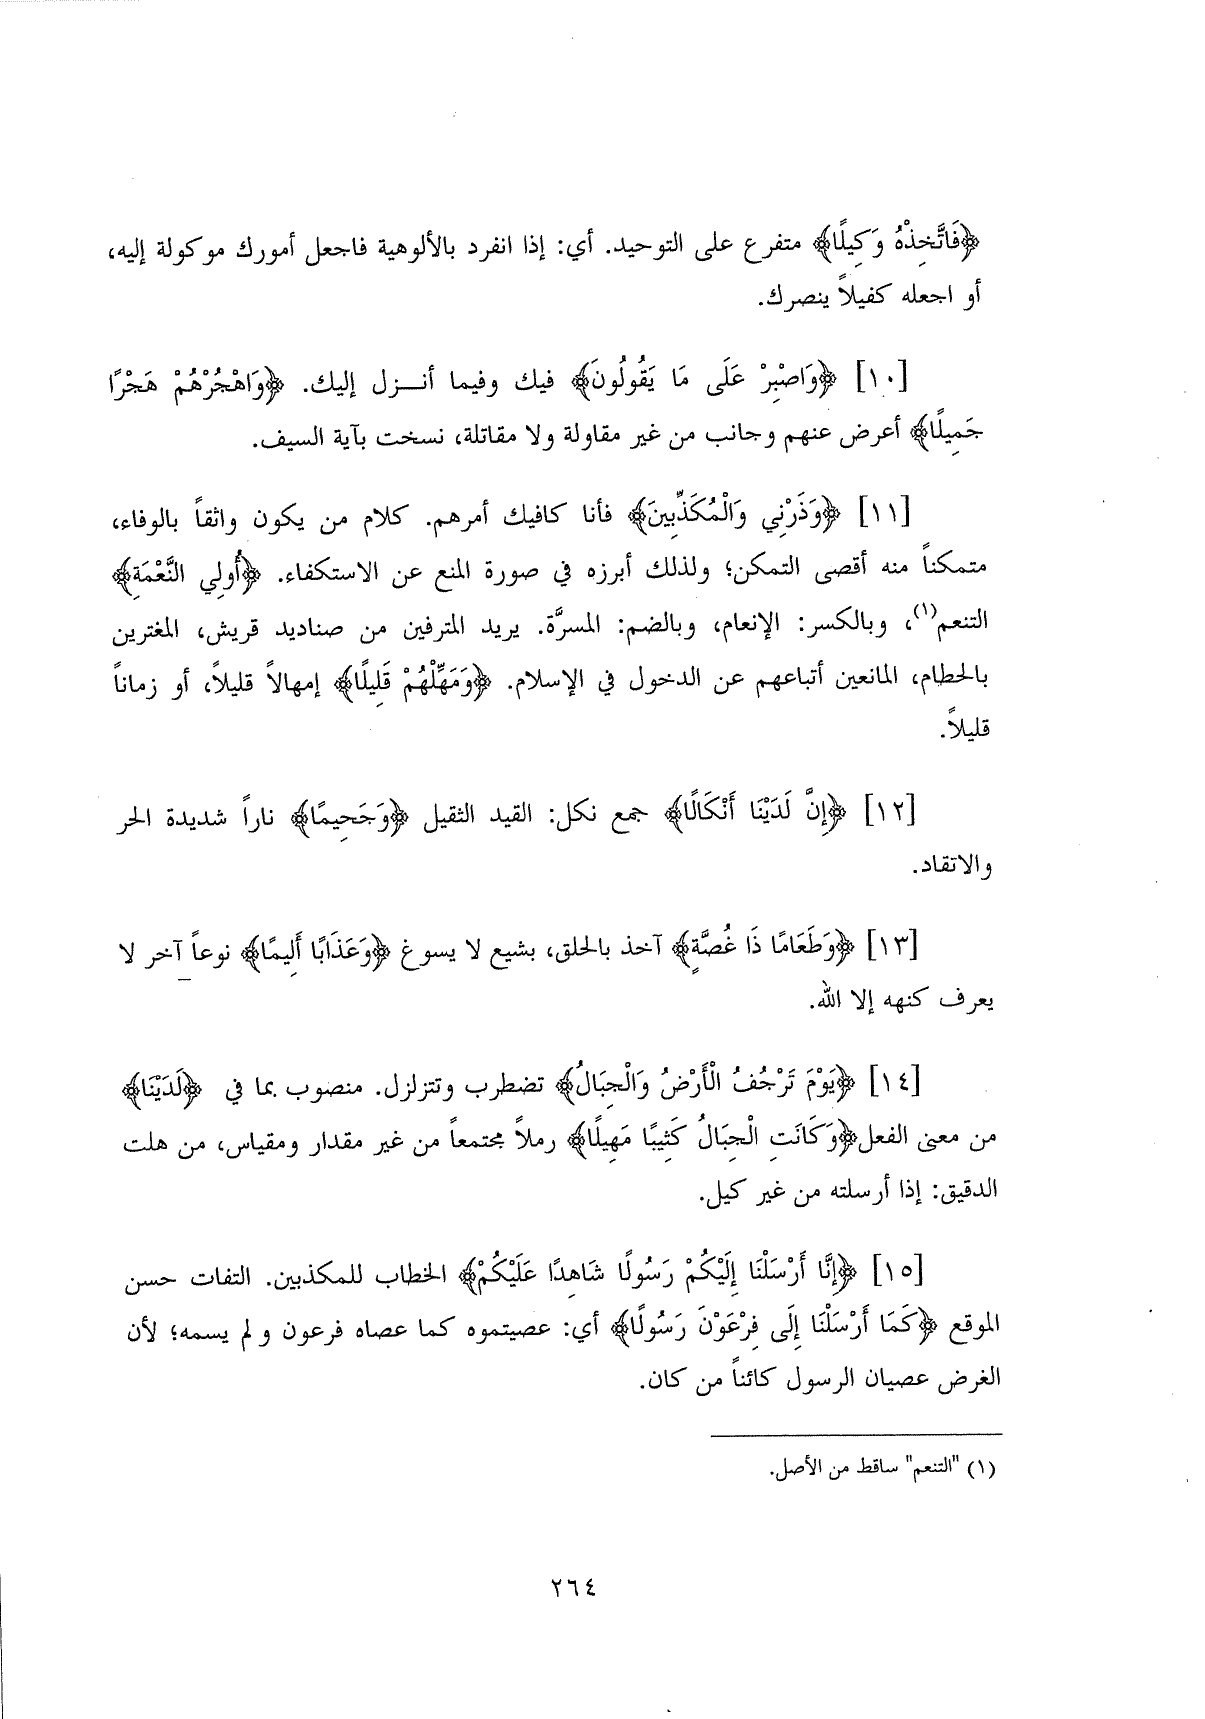 ﴿فَاتَّخِذْهُ وَكِيلًا﴾ متفرع على التوحيد. أي: إذا انفرد بالألوهية فاجعل أمورك موكولة إليه،
أو اجعله كفيلاً ينصرك.
[١٠] ﴿وَاصْبِرْ عَلَى مَا يَقُولُونَ﴾ فيك وفيما أنــزل إليك. ﴿وَاهْجُرْهُمْ هَجْرًا
جَمِيلًا﴾ أعرض عنهم وجانب من غير مقاولة ولا مقاتلة، نسخت بآية السيف.
[١١] ﴿وَذَرْنِي وَالْمُكَذِّبِينَ﴾ فأنا كافيك أمرهم. كلام من يكون واثقاً بالوفاء،
متمكناً منه أقصى التمكن؛ ولذلك أبرزه في صورة المنع عن الاستكفاء. ﴿أُولِي النَّعْمَةِ﴾
التنعم(١)، وبالكسر: الإنعام، وبالضم: المسرَّة. يريد المترفين من صناديد قريش، المغترين
بالحطام، المانعين أتباعهم عن الدخول في الإسلام. ﴿وَمَهِّلْهُمْ قَلِيلًا﴾ إمهالاً قليلاً، أو زماناً
قليلاً.
[١٢] ﴿إِنَّ لَدَيْنَا أَنْكَالًا﴾ جمع نكل: القيد الثقيل ﴿وَجَحِيمًا﴾ ناراً شديدة الحر
والاتقاد.
[١٣] ﴿وَطَعَامًا ذَا غُصَّةٍ﴾ آخذ بالحلق، بشيع لا يسوغ ﴿وَعَذَابًا أَلِيمًا﴾ نوعاً آخر لا
يعرف كنهه إلا الله.
[١٤] ﴿يَوْمَ تَرْجُفُ الْأَرْضُ وَالْجِبَالُ﴾ تضطرب وتتزلزل. منصوب بما في ﴿لَدَيْنَا﴾
من معنى الفعل ﴿وَكَانَتِ الْجِبَالُ كَثِيبًا مَهِيلًا﴾ رملاً مجتمعاً من غير مقدار ومقياس، من هلت
الدقيق: إذا أرسلته من غير كيل.
[١٥] ﴿إِنَّا أَرْسَلْنَا إِلَيْكُمْ رَسُولًا شَاهِدًا عَلَيْكُمْ﴾ الخطاب للمكذبين. التفات حسن
الموقع ﴿كَمَا أَرْسَلْنَا إِلَى فِرْعَوْنَ رَسُولًا﴾ أي: عصيتموه كما عصاه فرعون و لم يسمه؛ لأن
الغرض عصيان الرسول كائناً من كان.
(١) "التنعم" ساقط من الأصل.
٢٦٤